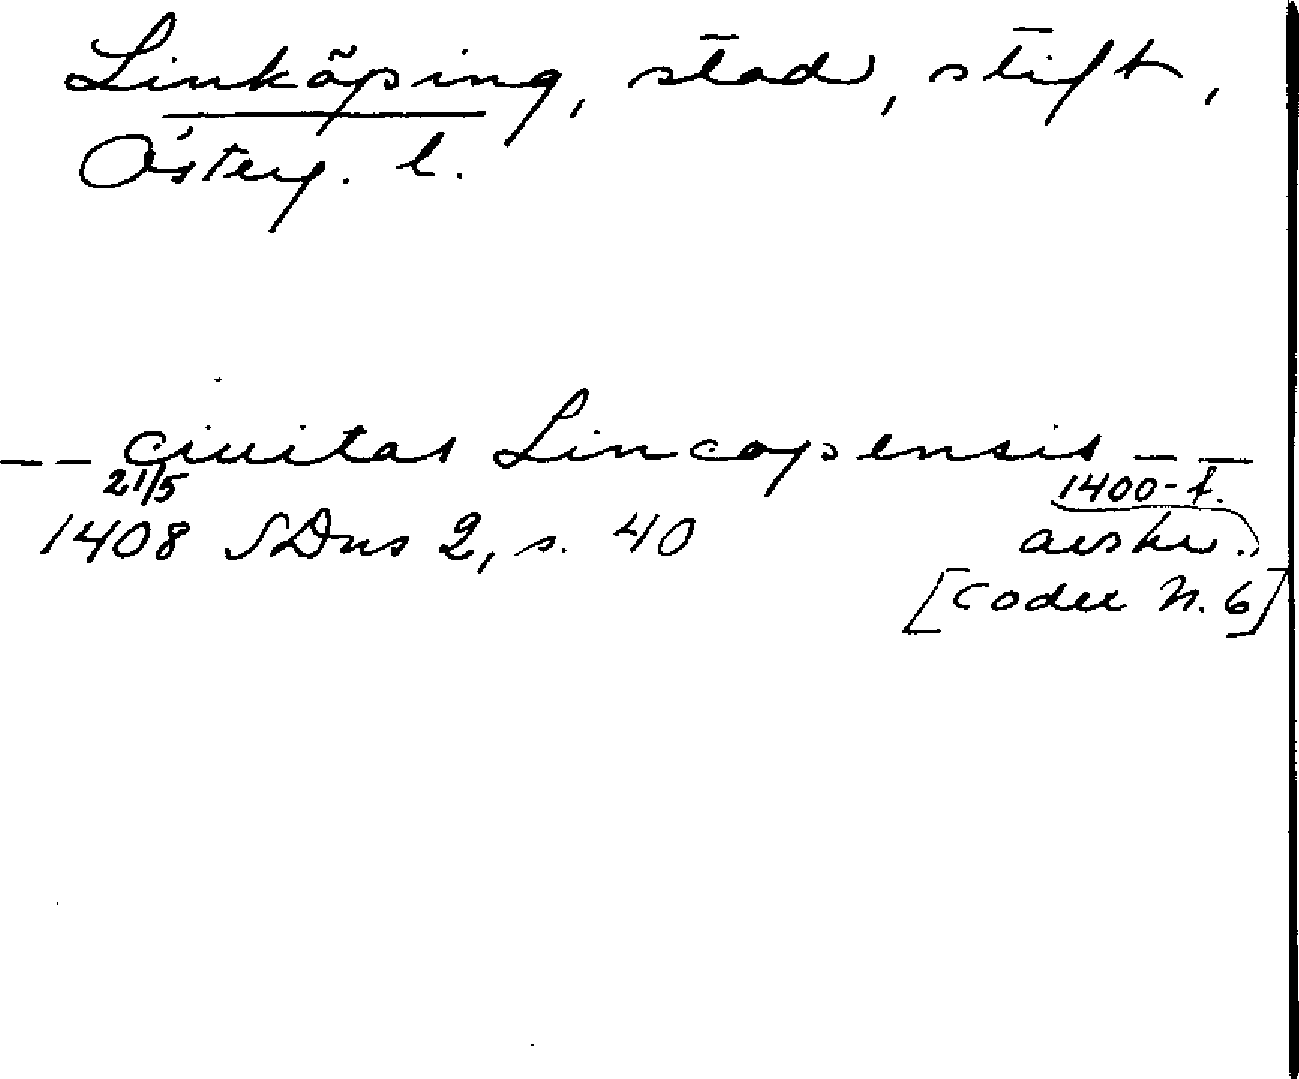 Linköping, stad, stift,
Österg. l.
-- ciuitas Lincopensis --
21/5 1400-t.
1408 SDns 2, s. 40 avskr.
[Codex N. 6]